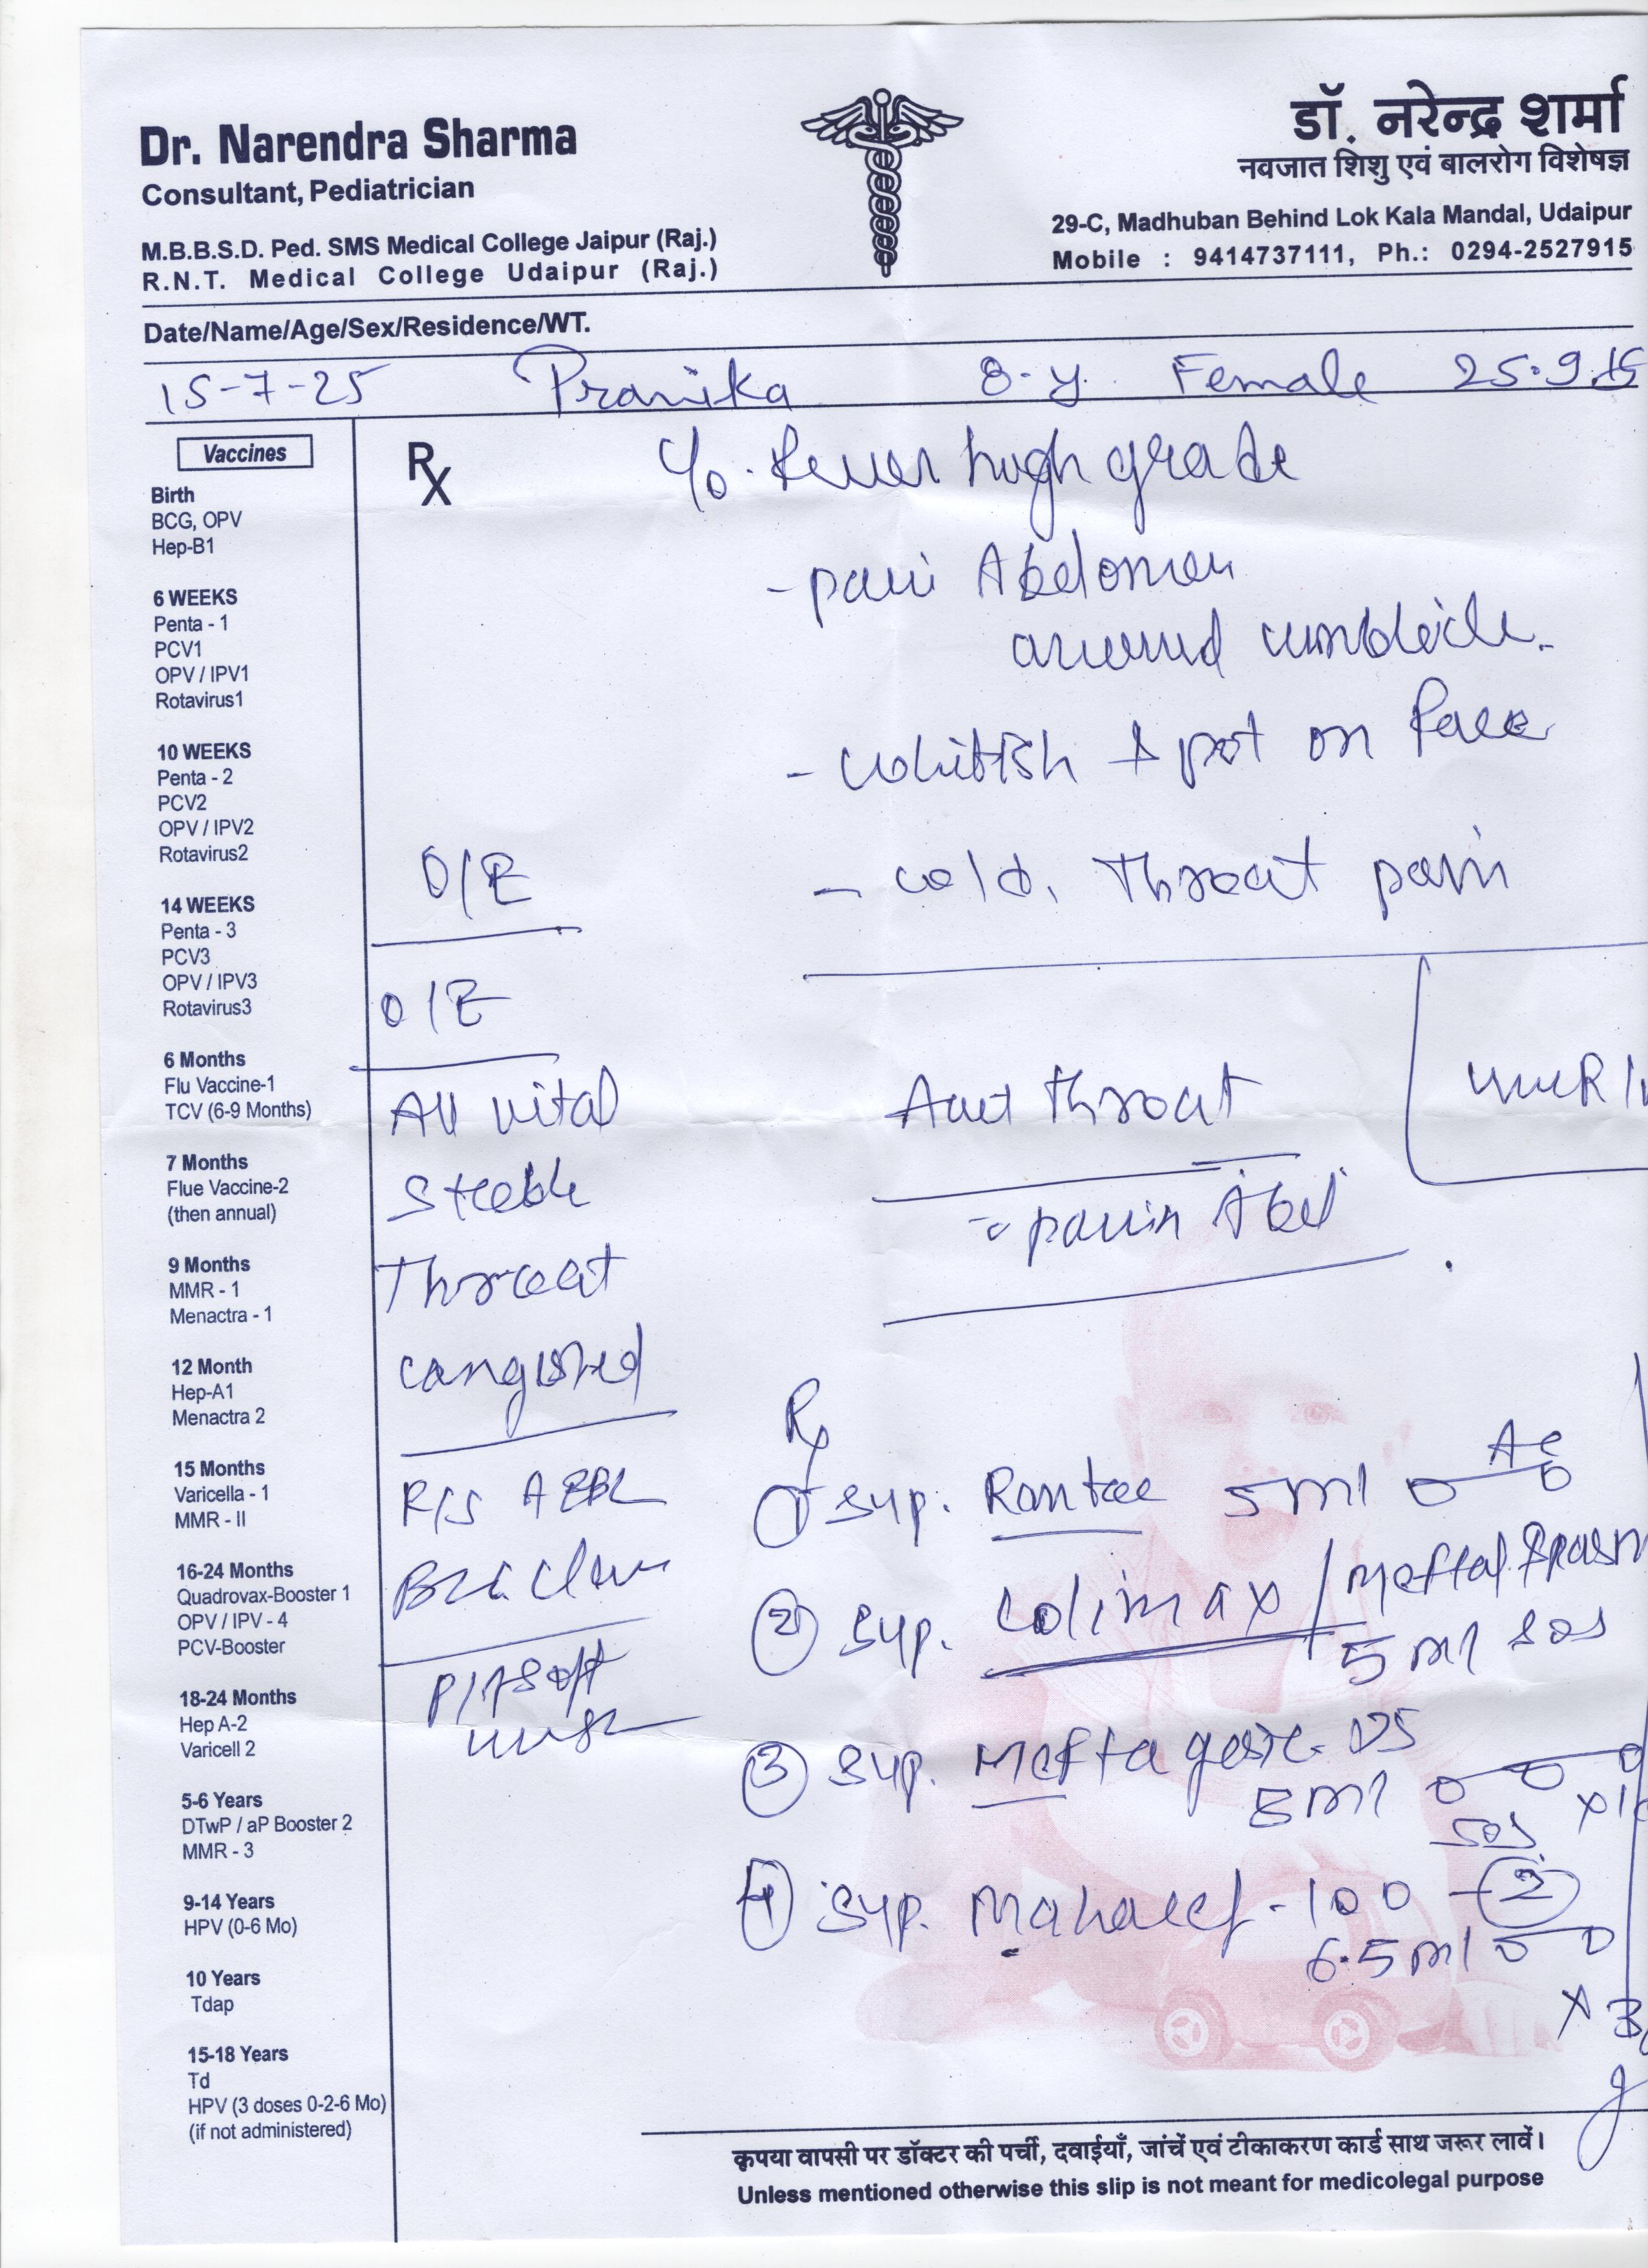 Dr. Narendra Sharma
Consultant, Pediatrician
M.B.B.S.D. Ped. SMS Medical College Jaipur (Raj.)
R.N.T. Medical College Udaipur (Raj.)
डॉ. नरेन्द्र शर्मा
नवजात शिशु एवं बालरोग विशेषज्ञ
29-C, Madhuban Behind Lok Kala Mandal, Udaipur
Mobile : 9414737111, Ph.: 0294-2527915
Date/Name/Age/Sex/Residence/WT.
15-7-25 Pranika 8-y. Female 25.9
Vaccines
Birth
BCG, OPV
Hep-B1
6 WEEKS
Penta - 1
PCV1
OPV / IPV1
Rotavirus1
10 WEEKS
Penta - 2
PCV2
OPV / IPV2
Rotavirus2
14 WEEKS
Penta - 3
PCV3
OPV / IPV3
Rotavirus3
6 Months
Flu Vaccine-1
TCV (6-9 Months)
7 Months
Flue Vaccine-2
(then annual)
9 Months
MMR - 1
Menactra - 1
12 Month
Hep-A1
Menactra 2
15 Months
Varicella - 1
MMR - II
16-24 Months
Quadrovax-Booster 1
OPV / IPV - 4
PCV-Booster
18-24 Months
Hep A-2
Varicell 2
5-6 Years
DTwP / aP Booster 2
MMR - 3
9-14 Years
HPV (0-6 Mo)
10 Years
Tdap
15-18 Years
Td
HPV (3 doses 0-2-6 Mo)
(if not administered)
Rx
c/o. Fever high grade
- pain Abdomen
around umblicle.
- whitish spot on face
- cold, Throat pain
O/E
O/E
All vital
Stable
Throat
congested
R/S AEBE
B/L Clear
P/A Soft
Acut throat
pain Abd
Rx
① Syp. Rantac 5ml AC
② Syp. Colimax / Meftal Spasm
5 ml sos
③ Syp. Meftagesic DS
5ml
sos
④ Syp. Mahacef - 100 - ②
6.5ml
x 3
कृपया वापसी पर डॉक्टर की पर्ची, दवाईयाँ, जांचें एवं टीकाकरण कार्ड साथ जरूर लावें।
Unless mentioned otherwise this slip is not meant for medicolegal purpose